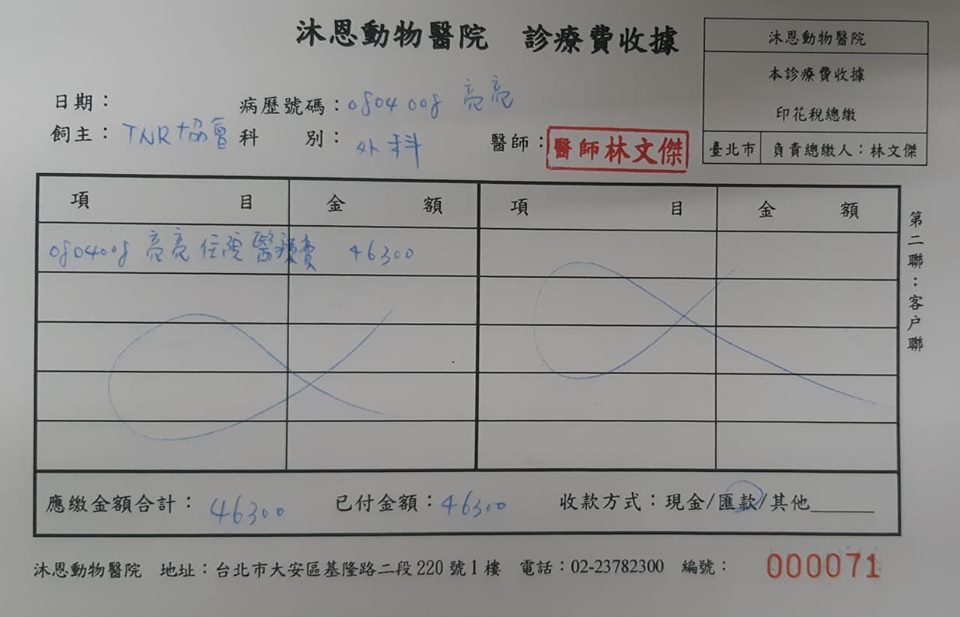 沐恩動物醫院 診療費收據
沐恩動物醫院
本診療費收據
印花稅總繳
臺北市 負責總繳人：林文傑
日期：
病歷號碼：0804008 亮亮
飼主：TNR協會
科 別：外科
醫師：醫師林文傑
項 目 金 額 項 目 金 額
0804008 亮亮 住院醫療費 46300
第二聯：客戶聯
應繳金額合計：46300 已付金額：46300 收款方式：現金/匯款/其他______
沐恩動物醫院 地址：台北市大安區基隆路二段220號1樓 電話：02-23782300 編號：000071